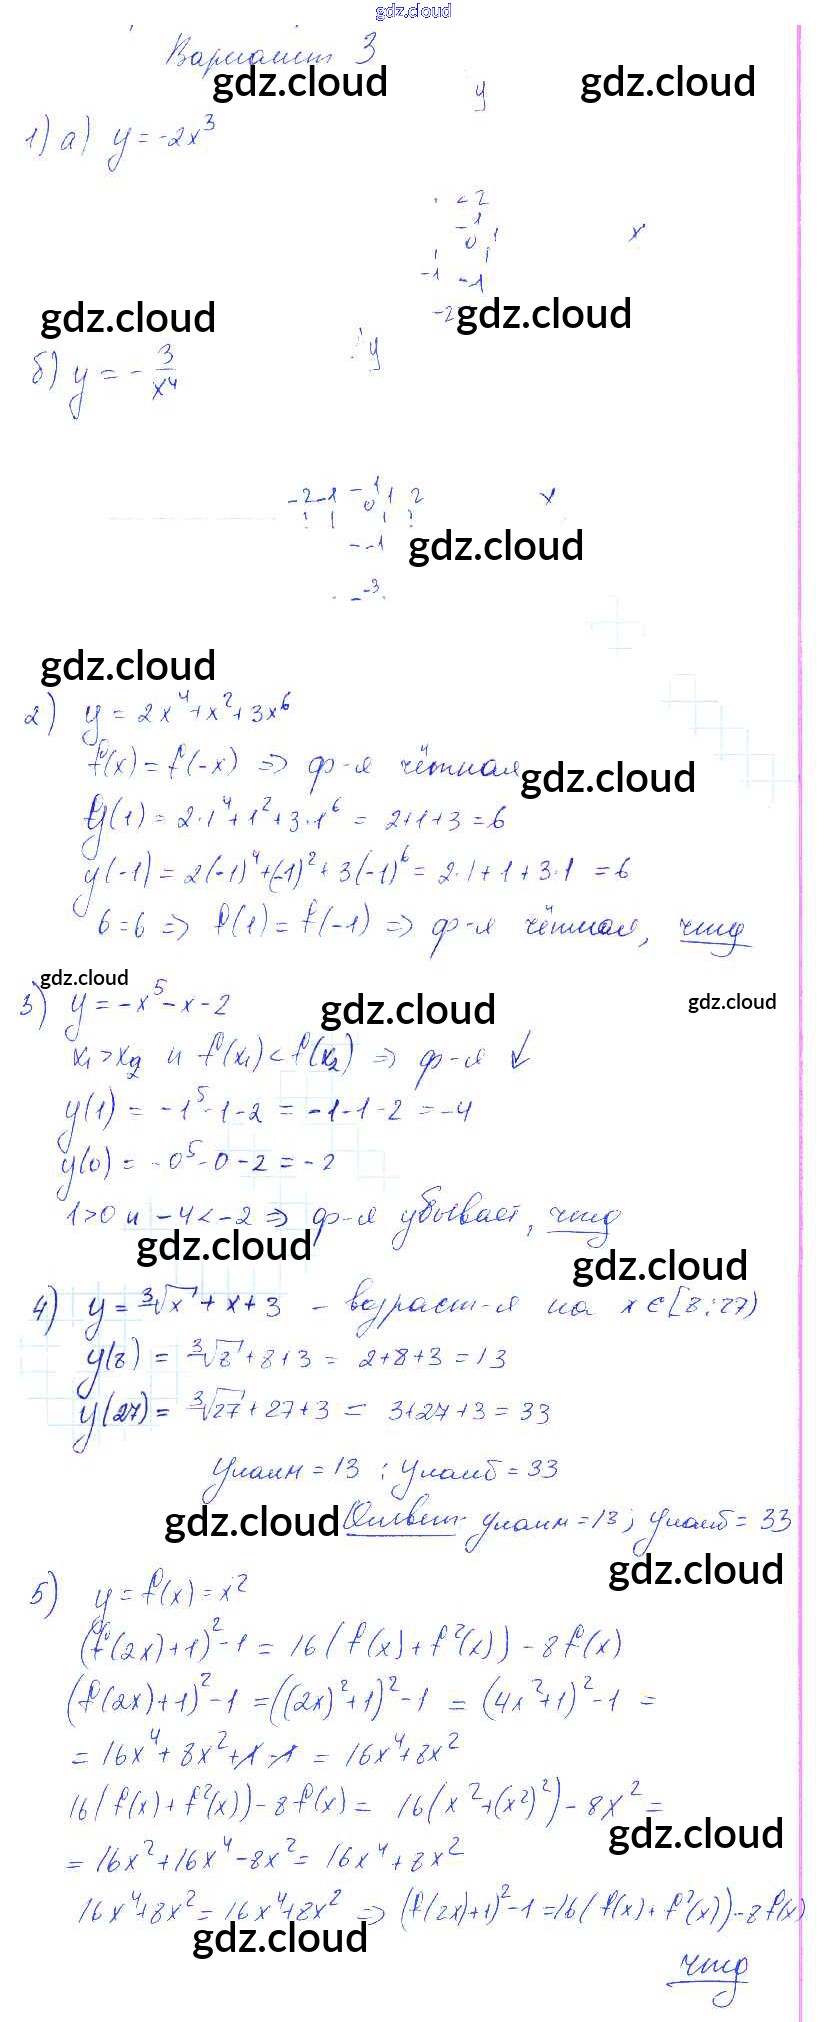 gdz.cloud
Вариант 3
gdz.cloud gdz.cloud
y
1) а) y = -2x³
2
1
0 1
x
-1 -1
-2
gdz.cloud gdz.cloud
y
б) y = - 3/x⁴
-2 -1 1 0 1 2 x
-1
gdz.cloud
-3
gdz.cloud
2) y = 2x⁴+x²+3x⁶
f(x) = f(-x) => ф-я чётная
gdz.cloud
y(1) = 2·1⁴+1²+3·1⁶ = 2+1+3 = 6
y(-1) = 2(-1)⁴+(-1)²+3(-1)⁶ = 2·1+1+3·1 = 6
6=6 => f(1) = f(-1) => ф-я чётная, чтд
gdz.cloud gdz.cloud gdz.cloud
3) y = -x⁵-x-2
x₁>x₂ и f(x₁)<f(x₂) => ф-я ↓
y(1) = -1⁵-1-2 = -1-1-2 = -4
y(0) = -0⁵-0-2 = -2
1>0 и -4<-2 => ф-я убывает, чтд
gdz.cloud gdz.cloud
4) y = ∛x + x + 3 - возраст-я на x∈[8;27)
y(8) = ∛8 + 8+3 = 2+8+3 = 13
y(27) = ∛27 + 27+3 = 3+27+3 = 33
yнаим = 13 ; yнаиб = 33
gdz.cloud Ответ: yнаим = 13; yнаиб = 33
gdz.cloud
5) y = f(x) = x²
(f(2x)+1)²-1 = 16(f(x)+f²(x)) - 8f(x)
(f(2x)+1)²-1 = ((2x)²+1)²-1 = (4x²+1)²-1 =
= 16x⁴+8x²+1-1 = 16x⁴+8x²
16(f(x)+f²(x))-8f(x) = 16(x²+(x²)²)-8x² =
gdz.cloud
= 16x²+16x⁴-8x² = 16x⁴+8x²
16x⁴+8x² = 16x⁴+8x² => (f(2x)+1)²-1 = 16(f(x)+f²(x))-8f(x)
gdz.cloud
чтд